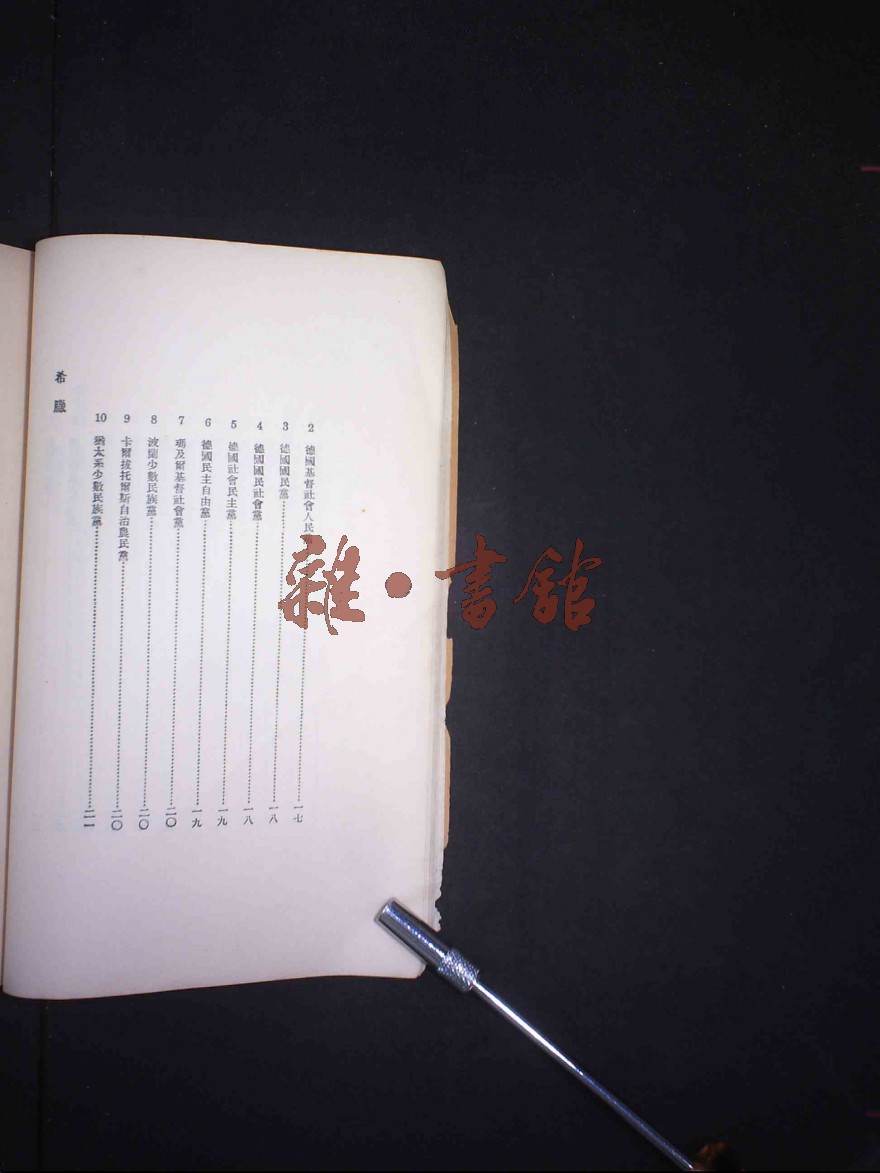 2 德國基督社會人民 一七
3 德國國民黨 一八
4 德國國民社會黨 一八
5 德國社會民主黨 一九
6 德國民主自由黨 一九
7 瑪及爾基督社會黨 二〇
8 波蘭少數民族黨 二〇
9 卡爾拔托爾斯自治農民黨 二〇
10 猶太系少數民族黨 二一
希臘
雜·書館